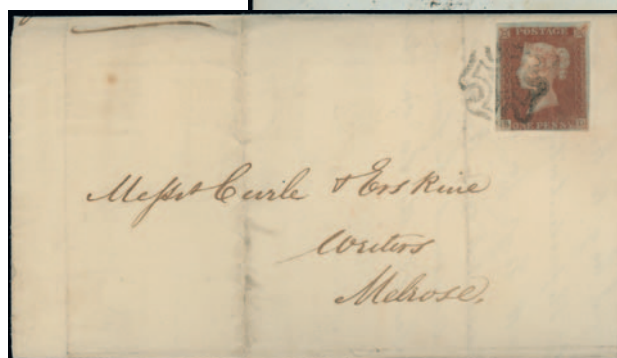 POSTAGE
ONE PENNY
Messrs Curle & Erskine
Writers
Melrose.